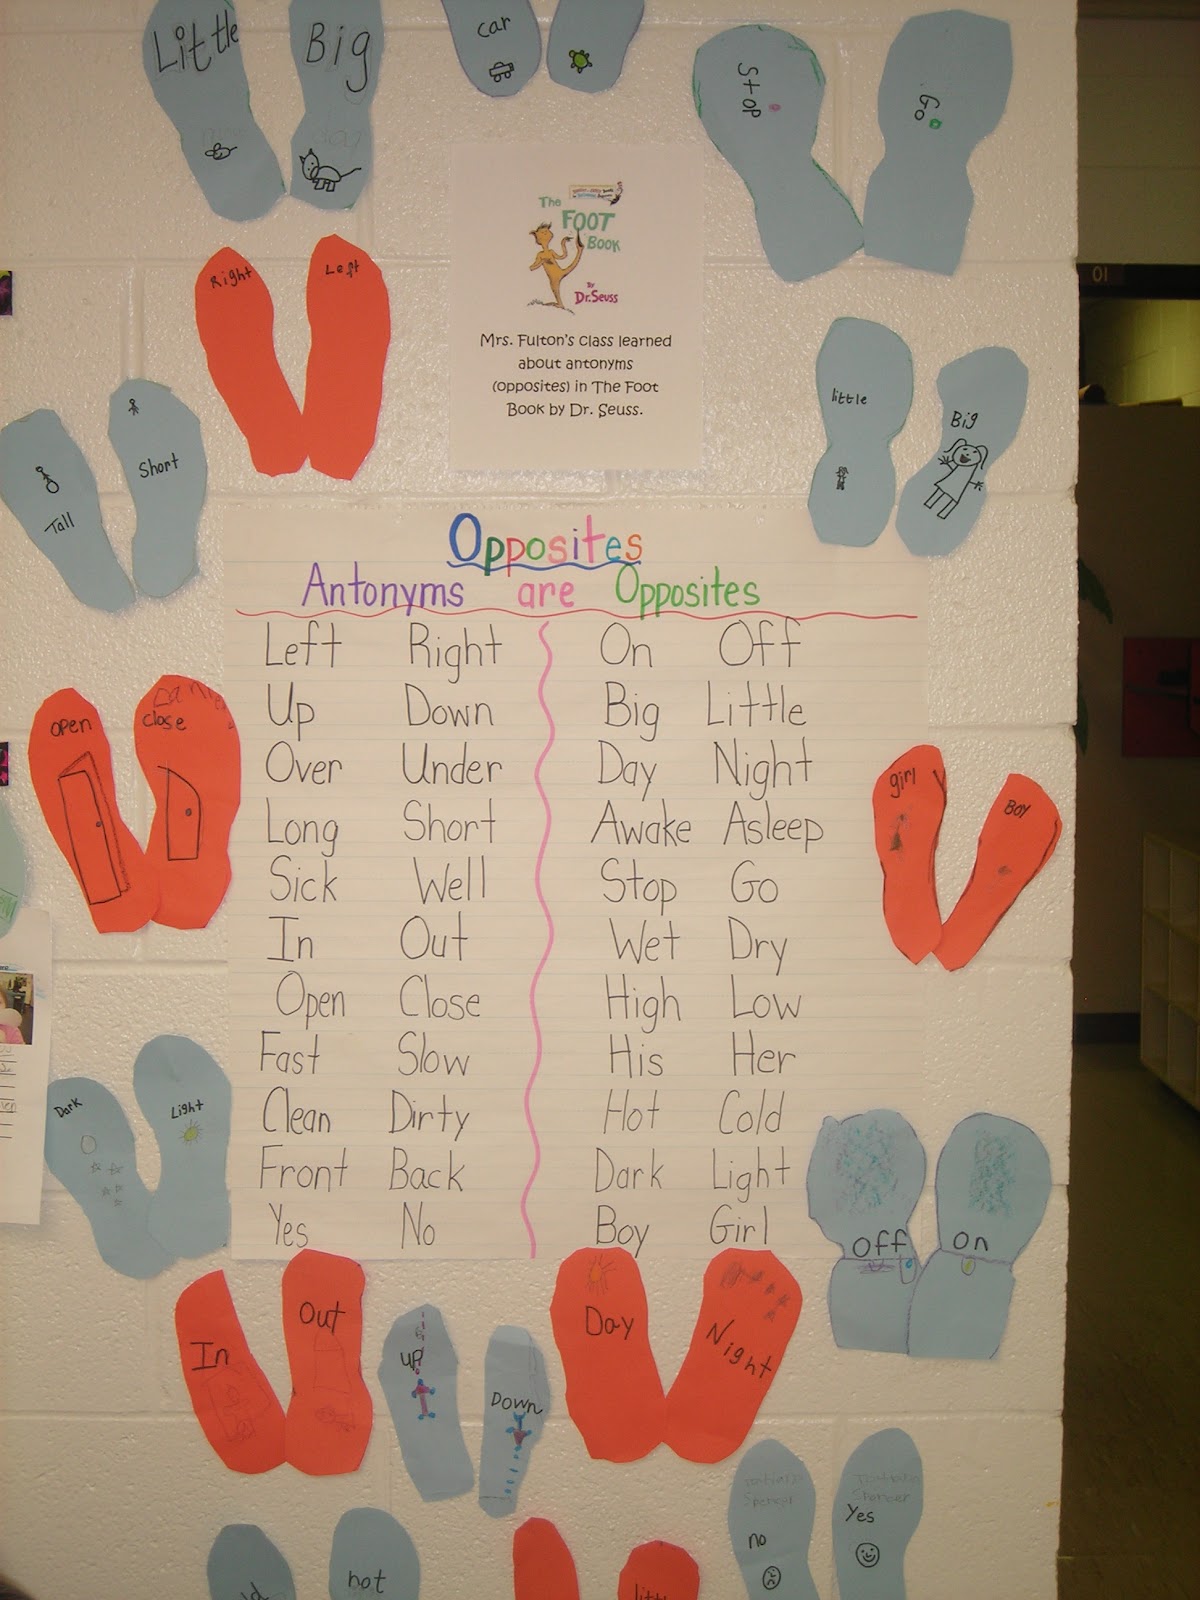 Little Big
car
Stop Go
The
FOOT
BOOK
By
Dr. Seuss
Mrs. Fulton's class learned
about antonyms
(opposites) in The Foot
Book by Dr. Seuss.
Right Left
little Big
Tall Short
Opposites
Antonyms are Opposites
Left Right On Off
Up Down Big Little
Over Under Day Night
Long Short Awake Asleep
Sick Well Stop Go
In Out Wet Dry
Open Close High Low
Fast Slow His Her
Clean Dirty Hot Cold
Front Back Dark Light
Yes No Boy Girl
open close
girl Boy
Dark Light
Off On
In Out
up Down
Day Night
no Yes
hot
01